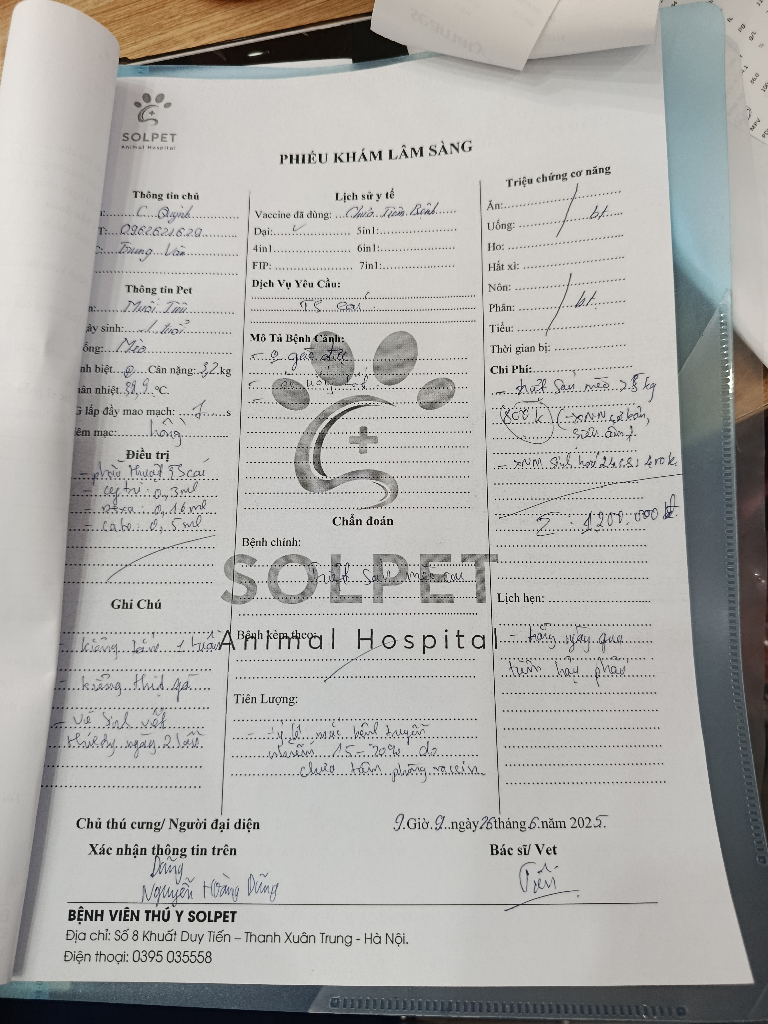 SOLPET
Animal Hospital
PHIẾU KHÁM LÂM SÀNG
Thông tin chủ
C. Quỳnh
0962621629
Trung Văn
Thông tin Pet
Muối Tiêu
ày sinh: 1 tuổi
ống: Mèo
nh biệt Cân nặng: 3,2 kg
ân nhiệt 38,9 °C
G lấp đầy mao mạch: 1 s
êm mạc: hồng
Điều trị
- phẫu thuật TS cái
0,3ml
0,16ml
- cato: 0,5ml
Ghi Chú
- kiêng tắm 1 tuần
- kiêng thịt gà
- vệ sinh vết
thương ngày 2 lần
Lịch sử y tế
Vaccine đã dùng: Chưa Tiêm Bệnh
Dại: ✓ 5in1:
4in1 6in1:
FIP: 7in1:
Dịch Vụ Yêu Cầu:
TS cái
Mô Tả Bệnh Cảnh:
Chẩn đoán
Bệnh chính:
Triệt sản mèo cái
SOLPET
Animal Hospital
Bệnh kèm theo:
Tiên Lượng:
- Tỷ lệ mắc bệnh truyền
nhiễm 15-20% do
chưa tiêm phòng vaccin
Triệu chứng cơ năng
Ăn:
Uống: bt
Ho:
Hắt xì:
Nôn:
Phân: bt
Tiểu:
Thời gian bị:
Chi Phí:
- triệt sản mèo kg
800k
siêu âm
- XNM sinh hoá 24 cs: 400k
Σ: 1200.000đ
Lịch hẹn:
- hằng ngày qua
tiêm hậu phẫu
Chủ thú cưng/ Người đại diện
9 Giờ 9 ngày 26 tháng 6 năm 2025
Xác nhận thông tin trên
Bác sĩ/ Vet
Dũng
Nguyễn Hoàng Dũng
Tiến
BỆNH VIÊN THÚ Y SOLPET
Địa chỉ: Số 8 Khuất Duy Tiến – Thanh Xuân Trung - Hà Nội.
Điện thoại: 0395 035558